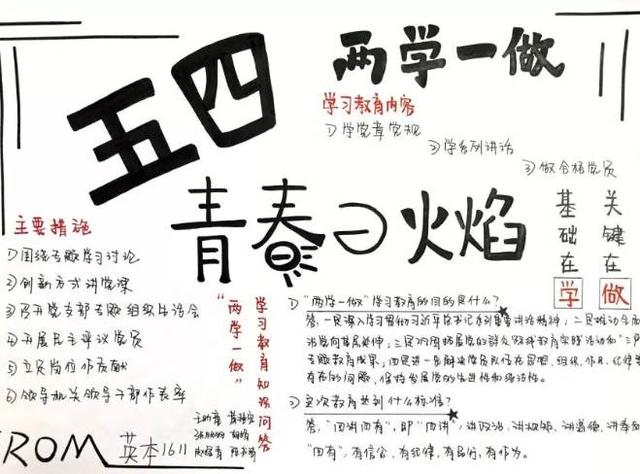 五四
两学一做
学习教育内容
①学党章党规
②学系列讲话
③做合格党员
青春の火焰
基础在
学
关键在
做
主要措施
①围绕专题学习讨论
②创新方式讲党课
③召开党支部专题组织生活会
④开展民主评议党员
⑤立足岗位作贡献
⑥领导机关领导干部作表率
"两学一做"
学习教育知识问答
①"两学一做"学习教育的目的是什么?
答:一是深入学习贯彻习近平总书记系列重要讲话精神;二是推动全面
治党向基层延伸;三是巩固拓展党的群众路线教育实践活动和"三严
专题教育成果;四是进一步解决党员队伍在思想、组织、作风、纪律
存在的问题,保持发展党的先进性和纯洁性。
②这次教育达到什么标准?
答:"四讲四有",即"四讲",讲政治、讲规矩、讲道德、讲奉献
"四有",有信念、有纪律、有品行、有作为。
ROM 英本1611